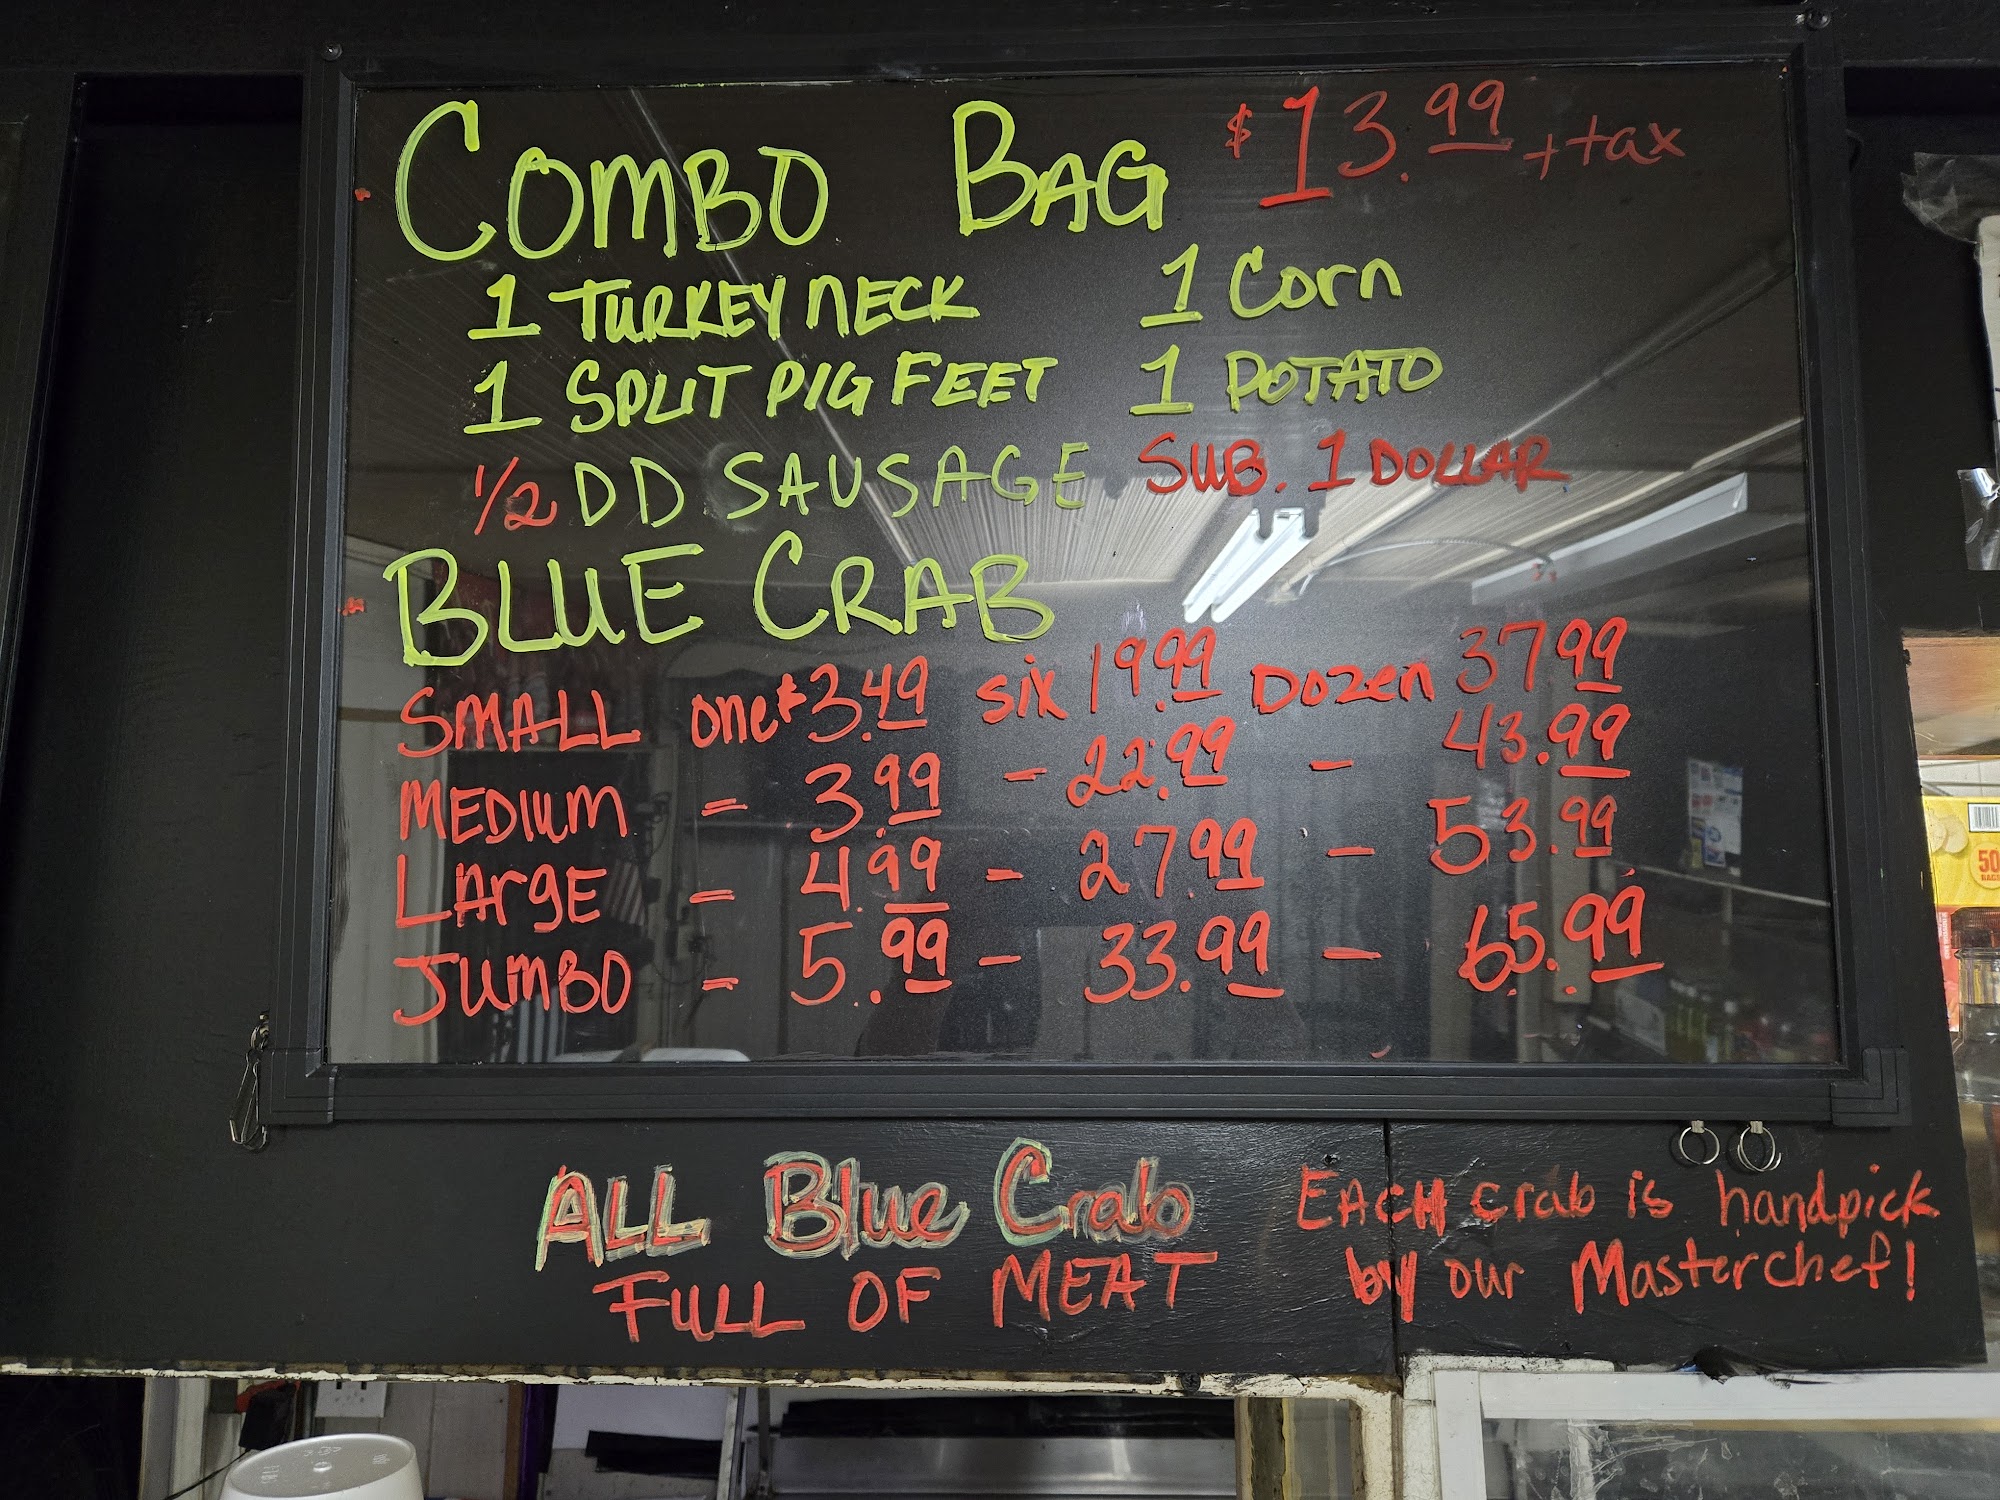 COMBO BAG $13.99 + tax
1 TURKEY NECK 1 Corn
1 SPLIT PIG FEET 1 POTATO
1/2 DD SAUSAGE SUB. 1 DOLLAR
BLUE CRAB
SMALL one $3.49 six 19.99 Dozen 37.99
MEDIUM - 3.99 - 22.99 - 43.99
LArgE - 4.99 - 27.99 - 53.99
JUMBO - 5.99 - 33.99 - 65.99
ALL Blue Crab
FULL OF MEAT
EACH crab is handpick
by our Masterchef!
50
BAGS